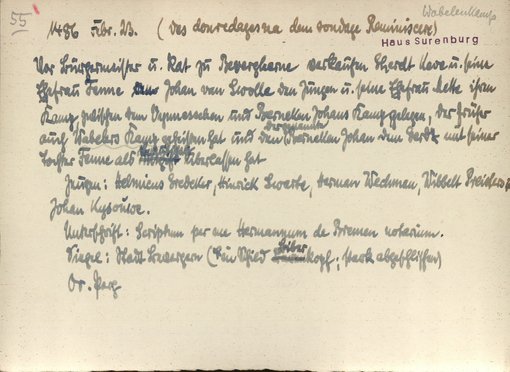 55
Wabelenkamp
1486 Febr. 23. (des donredages na dem sondage Reminiscere)
Haus Surenburg
Vor Bürgermeister u. Rat zu Bevergherne verkaufen Everdt und seine
Ehefrau Fenne Johan van Zwolle den Jungen u. seine Ehefrau Mette ihren
Kamp, zwischen dem und Berneken Johans Kamp gelegen, der früher
auch Wabelers Kamp geheißen hat und den der genannte Berneken Johan dem Everdt mit seiner
Tochter Fenne als überlassen hat
Zeugen: Helmicus Bredeker, Hinrick Swarte, Herman Wechman, Wibbelt
Johan
Unterschrift: Scriptum per me Hermannum de Bremen notarium.
Siegel: Stadt Bevergern (Ein Schild Biberkopf; stark abgeschliffen)
Or. Perg.